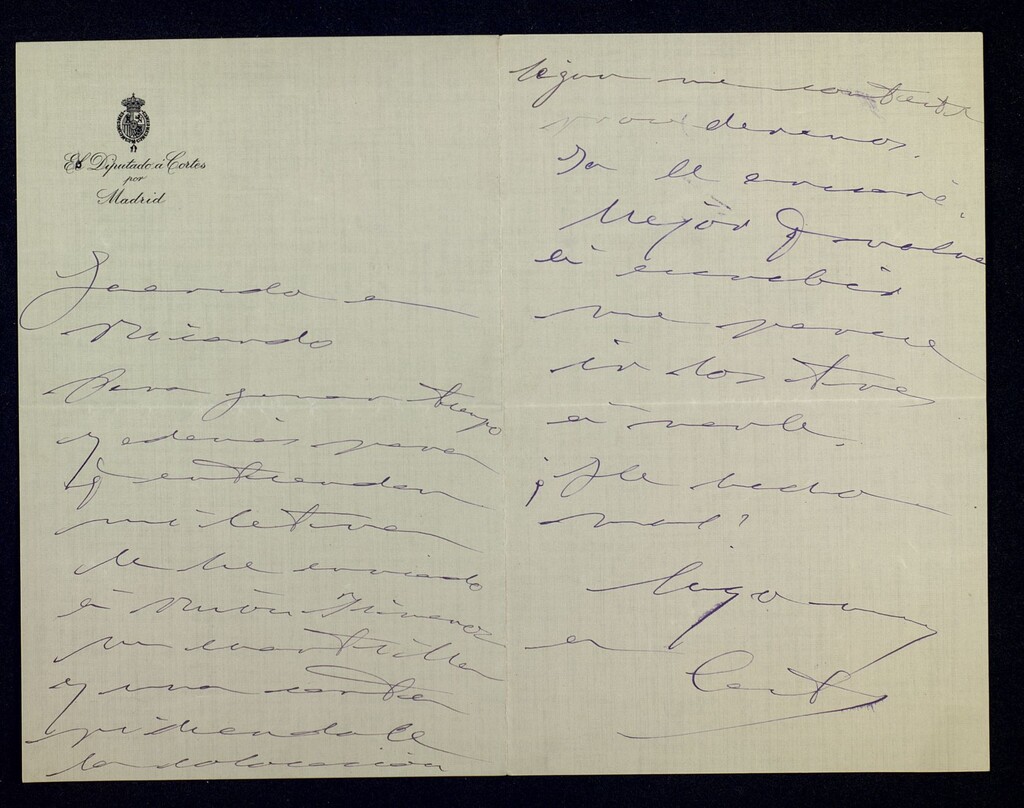 El Diputado á Cortes
por
Madrid
Querido
Ricardo
Para ganar tiempo
y además para
q entiendan
mi letra
le he enviado
á Ruiu Jimenez
una cuartilla
y una carta
pidiendole
la colocación
Segun me conteste
procederemos.
Ya le avisaré.
Mejor q volver
á escribir
me parece
ir los tres
á verle.
¿He hecho
mal?
Sigo